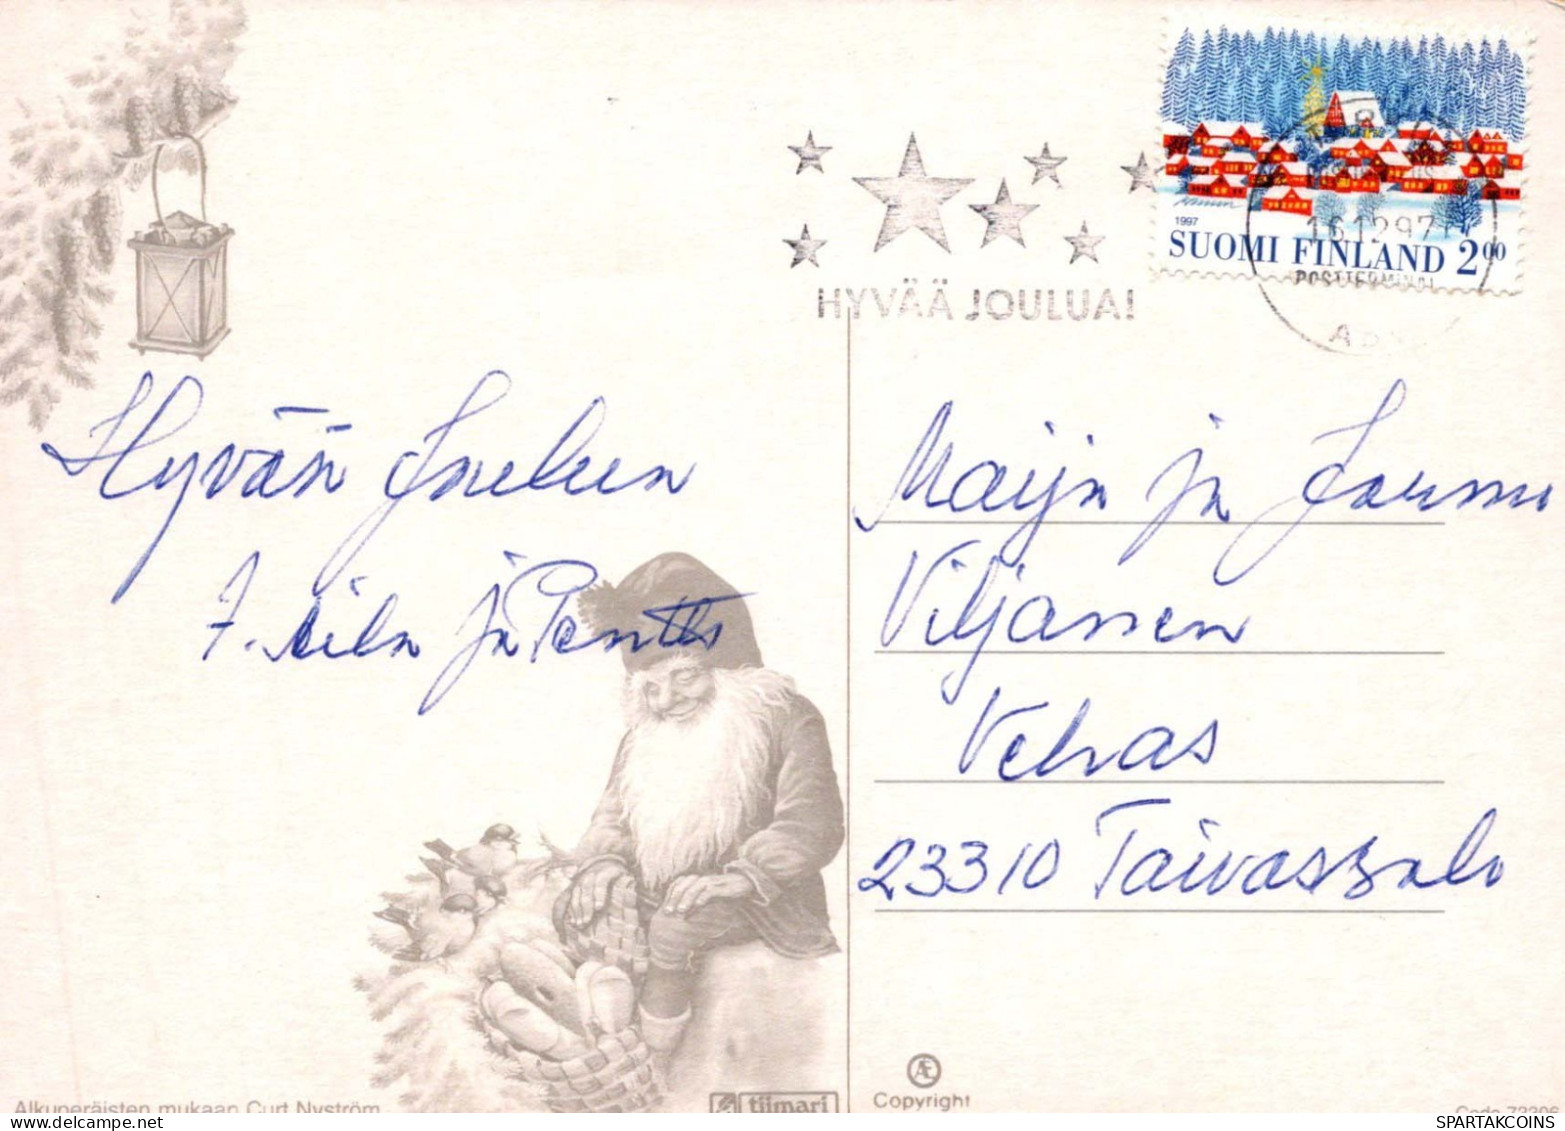 1997
SUOMI FINLAND 2.00
16.12.97
POSTTERMINAL
HYVÄÄ JOULUA!
Hyvän Joulun
T. Aila ja Pentti
Maija ja Jorma
Viljanen
Vehas
23310 Taivassalo
Alkuperäisten mukaan Curt Nyström
tiimari
Æ
Copyright
WWW.DELCAMPE.NET
SPARTAKCOINS